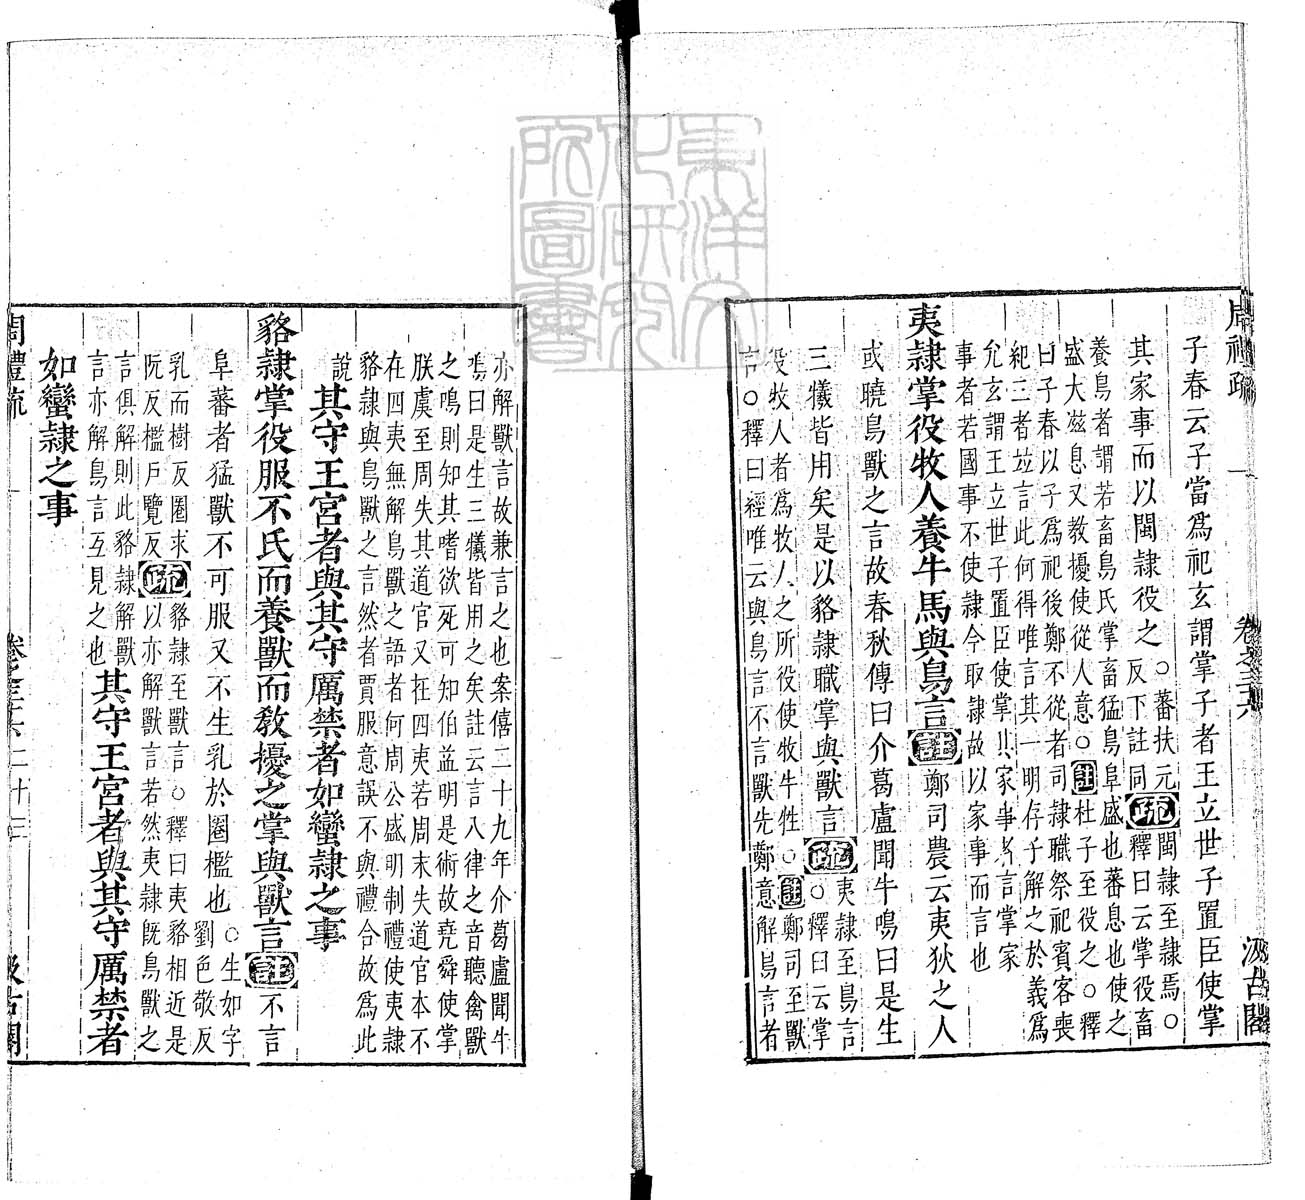 周禮疏 卷之三十六 汲古閣
子春云子當爲祀玄謂掌子者王立世子置臣使掌
其家事而以閩隸役之○蕃扶元反下註同疏閩隸至隸焉○釋曰云掌役畜
養鳥者謂若畜鳥氏掌畜猛鳥阜盛也蕃息也使之
盛大滋息又教擾使從人意○註杜子至役之○釋
曰子春以子爲祀後鄭不從者司隸職祭祀賓客喪
紀三者竝言此何得唯言其一明存乎子解之於義爲
允玄謂王立世子置臣使掌其家事者言掌家
事者若國事不使隸今取隸故以家事而言也
夷隸掌役牧人養牛馬與鳥言註鄭司農云夷狄之人
或曉鳥獸之言故春秋傳曰介葛盧聞牛鳴曰是生
三犧皆用矣是以貉隸職掌與獸言疏夷隸至鳥言○釋曰云掌
役牧人者爲牧人之所役使牧牛牲○註鄭司至獸
言○釋曰經唯云與鳥言不言獸先鄭意解鳥言者
亦解獸言故兼言之也案僖二十九年介葛盧聞牛
鳴曰是生三犧皆用之矣註云言八律之音聽禽獸
之鳴則知其嗜欲死可知伯益明是術故堯舜使掌
朕虞至周失其道官又在四夷若周末失道官本不
在四夷無解鳥獸之語者何周公盛明制禮使夷隸
貉隸與鳥獸之言然者賈服意誤不與禮合故爲此
說其守王宮者與其守厲禁者如蠻隸之事
貉隸掌役服不氏而養獸而敎擾之掌與獸言註不言
阜蕃者猛獸不可服又不生乳於圈檻也○生如字劉色敬反
乳而樹反圈求阮反檻戶覽反疏貉隸至獸言○釋曰夷貉相近是以亦解獸言若然夷隸旣鳥獸之
言俱解則此貉隸解獸言亦解鳥言互見之也其守王宮者與其守厲禁者
如蠻隸之事
周禮疏 卷之三十六 二十三 汲古閣
東洋文化研究所圖書